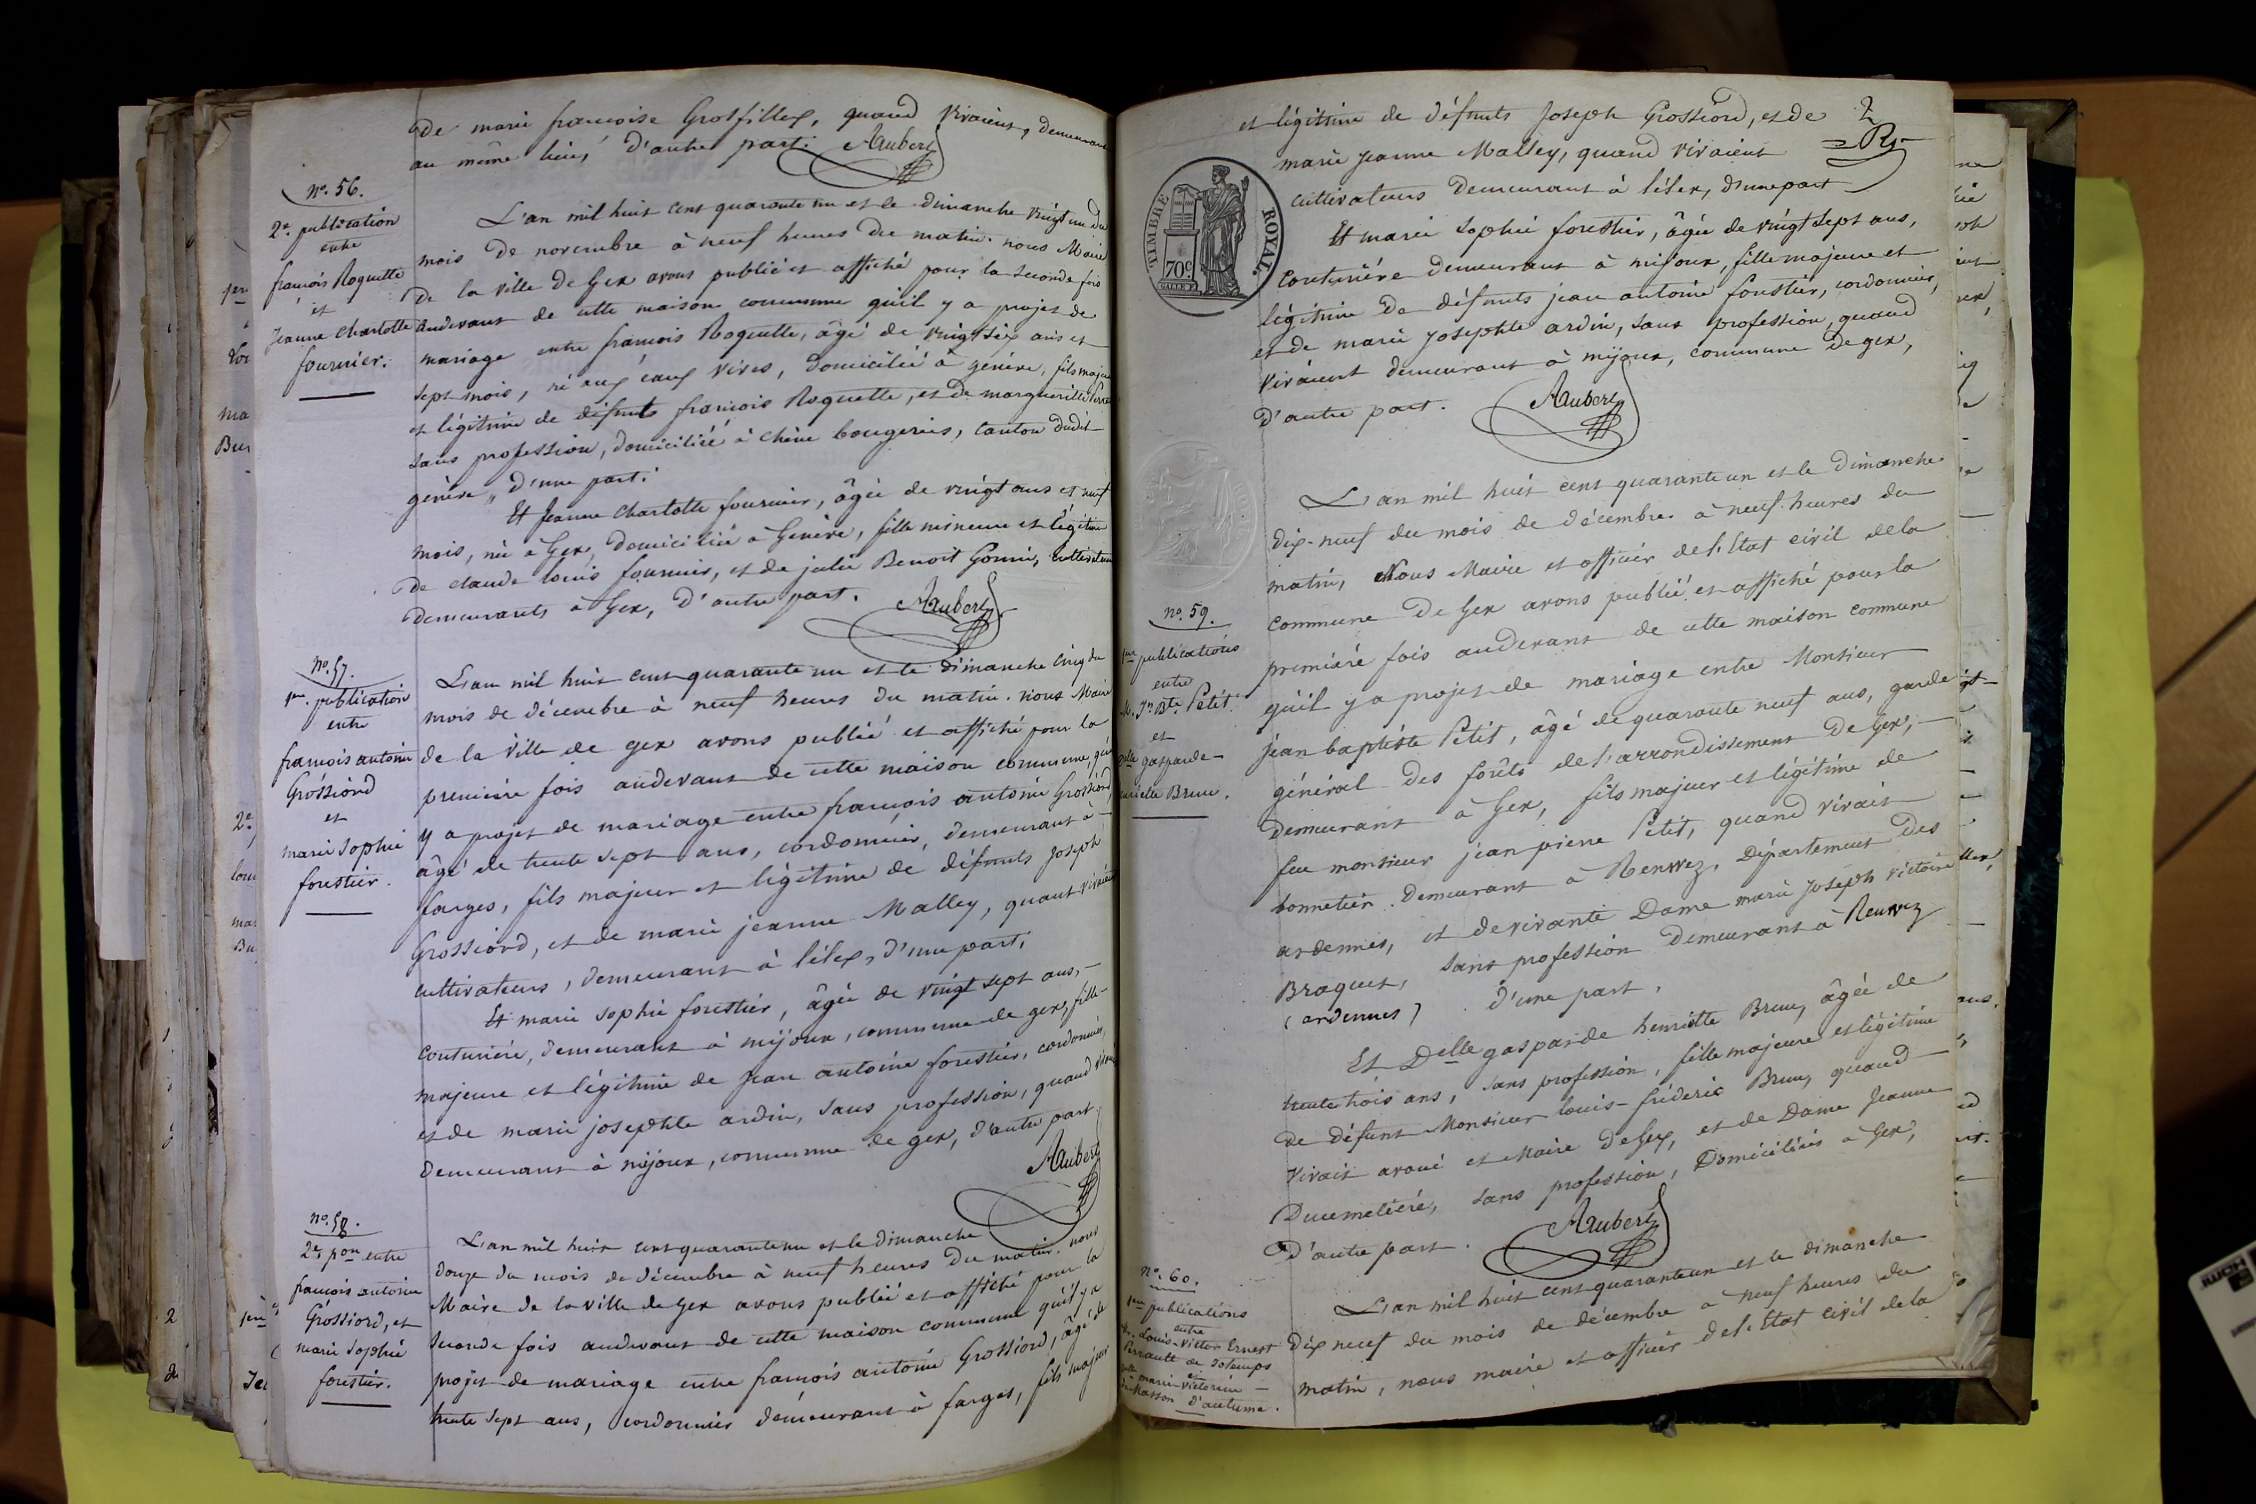 de marie françoise Grosfilley, quand vivaient, demeurant
au même lieu, d'autre part. Aubert
nº. 56.
2e. publication
entre
françois Roguette
et
Jeanne Charlotte
fournier.
L'an mil huit cent quarante un et le dimanche vingt un du
mois de novembre à neuf heures du matin. nous Maire
de la ville de Gex avons publié et affiché pour la seconde fois
audevant de cette maison commune qu'il y a projet de
mariage entre françois Roguette, âgé de vingt six ans et
sept mois, né aux eaux vives, domicilié à genève, fils majeur
et légitime de défunt françois Roguette, et de marguerite
sans profession, domiciliée à chêne bougeries, canton dudit
genève, d'une part.
Et Jeanne Charlotte fournier, âgée de vingt ans et neuf
mois, née à Gex, domiciliée à Genève, fille mineure et légitime
de claude louis fournier, et de julie Benoit Gonin, cultivateurs
demeurants à Gex, d'autre part. Aubert
nº. 57.
1ere. publication
entre
françois antoine
Grossiord
et
marie Sophie
forestier.
L'an mil huit cent quarante un et le dimanche cinq du
mois de décembre à neuf heures du matin. nous Maire
de la ville de gex avons publié et affiché pour la
première fois audevant de cette maison commune, qu'il
y a projet de mariage entre françois antoine Grossiord,
âgé de trente sept ans, cordonnier, demeurant à
farges, fils majeur et légitime de défunts Joseph
Grossiord, et de marie jeanne Malley, quant vivaient
cultivateurs, demeurant à lélex, d'une part.
Et marie sophie forestier, âgée de vingt sept ans,
couturière, demeurant à mijoux, commune de gex, fille
majeure et légitime de jean antoine forestier, cordonnier,
et de marie josephte ardin, sans profession, quand vivaient
demeurant à mijoux, commune de gex, d'autre part
Aubert
nº. 58.
2e. pon entre
françois antoine
Grossiord, et
marie Sophie
forestier.
L'an mil huit cent quarante un et le dimanche
douze du mois de décembre à neuf heures du matin. nous
Maire de la ville de Gex avons publié et affiché pour la
seconde fois audevant de cette maison commune qu'il y a
projet de mariage entre françois antoine Grossiord, âgé de
trente sept ans, cordonnier demeurant à farges, fils majeur
et légitime de défunts Joseph Grossiord, et de
marie jeanne Malley, quand vivaient
cultivateurs demeurant à lélex, d'une part
TIMBRE ROYAL.
70c
Et marie sophie forestier, âgée de vingt sept ans,
couturière demeurant à mijoux, fille majeure et
légitime de défunts jean antoine forestier, cordonnier,
et de marie josephte ardin, sans profession, quand
vivaient demeurant à mijoux, commune de gex,
d'autre part. Aubert
nº. 59.
1ere publications
entre
M. Jn. Bte. Petit
et
Delle gasparde
henriette Brun.
L'an mil huit cent quarante un et le dimanche
dix-neuf du mois de décembre à neuf heures du
matin, Nous Maire et officier de l'Etat civil de la
commune de Gex avons publié et affiché pour la
première fois audevant de cette maison commune
qu'il y a projet de mariage entre Monsieur
jean baptiste Petit, âgé de quarante neuf ans, garde
général des forêts de l'arrondissement de Gex,
demeurant à Gex, fils majeur et légitime de
feu monsieur jean pierre Petit, quand vivait
bonnetier demeurant à Renwez, Département des
ardennes, et de vivante Dame marie Joseph victoire
Braquet, sans profession demeurant à Renwez
(ardennes) d'une part.
Et Delle gasparde henriette Brun, âgée de
trente trois ans, sans profession, fille majeure et légitime
de défunt Monsieur louis-fréderic Brun, quand
vivait avoué et Maire de Gex, et de Dame Jeanne
Ducemetière, sans profession, Domiciliés à Gex,
d'autre part. Aubert
nº. 60.
1ere publications
entre
M. Louis-Victor Ernest
Perrault de Jotemps
et
Delle marie victorine
Masson d'autume.
L'an mil huit cent quarante un et le dimanche
dix neuf du mois de décembre à neuf heures du
matin, nous maire et officier de l'Etat civil de la